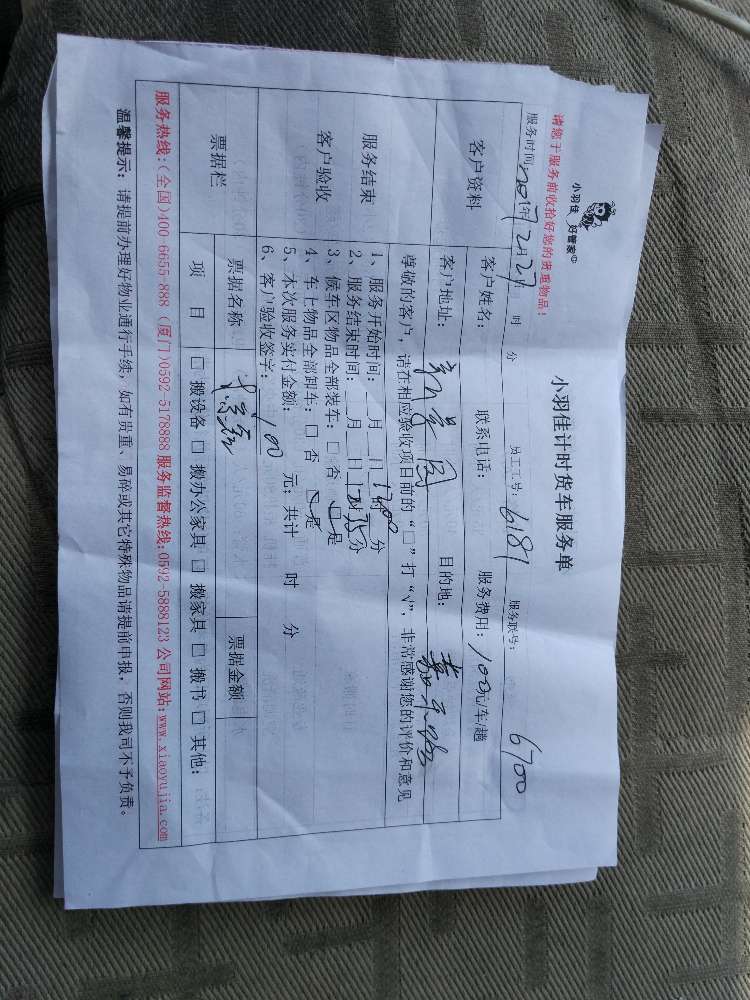 小羽佳 好管家
小羽佳计时货车服务单
请您于服务前收拾好您的贵重物品!
服务时间: 2017年2月27日 时 分 员工工号: 6181 服务联号: 6700
客户资料
客户姓名: 联系电话: 服务费用: 100元/车/趟
客户地址: 目的地:
服务结束
客户验收
尊敬的客户,请在相应验收项目前的“□”打“√”,非常感谢您的评价和意见
1、服务开始时间: 月 日 分
2、服务结束时间: 月 日 分
3、候车区物品全部装车: □ 否 □ 是
4、车上物品全部卸车: □ 否 □ 是
5、本次服务实付金额: 100 元; 共计 时 分
6、客户验收签字:
票据栏
票据名称 票据金额
项 目 □ 搬设备 □ 搬办公家具 □ 搬家具 □ 搬书 □ 其他:
服务热线:(全国)400-6655-888 (厦门)0592-5178888 服务监督热线:0592-5888123 公司网站:www.xiaoyujia.com
温馨提示: 请提前办理好物业通行手续, 如有贵重、易碎或其它特殊物品请提前申报, 否则我司不予负责。